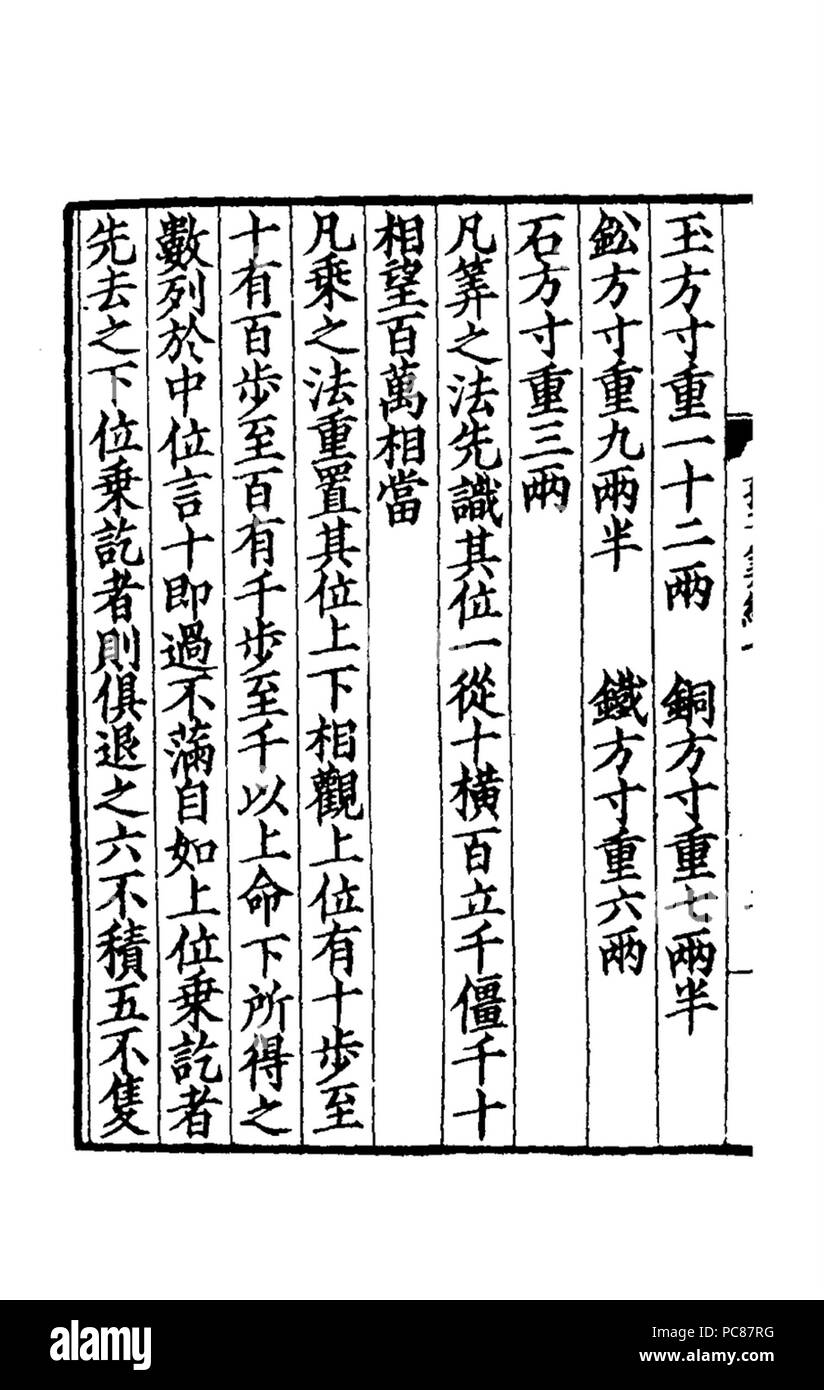 玉方寸重一十二兩　銅方寸重七兩半
鈆方寸重九兩半　鐵方寸重六兩
石方寸重三兩
凡筭之法先識其位一從十橫百立千僵千十
相望百萬相當
凡乗之法重置其位上下相觀上位有十步至
十有百步至百有千步至千以上命下所得之
數列於中位言十即過不滿自如上位乗訖者
先去之下位乗訖者則俱退之六不積五不隻
alamy
PC87RG
www.alamy.com